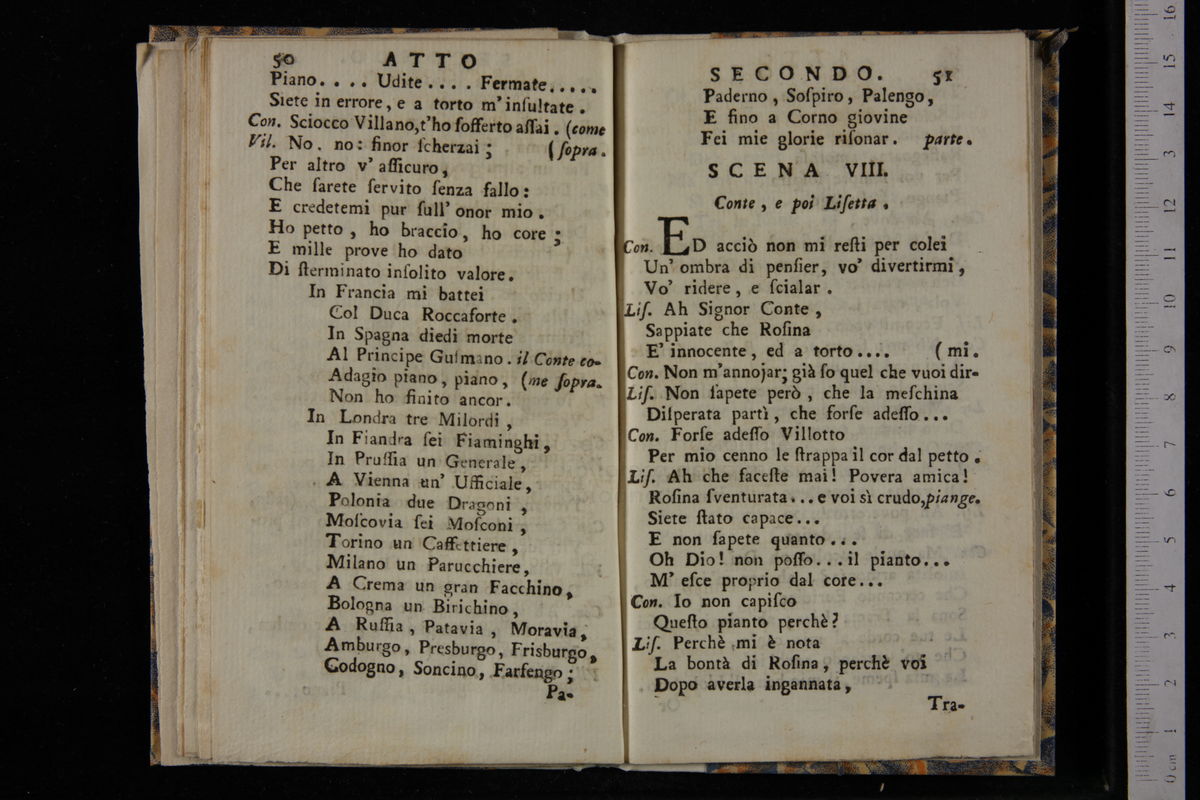 50 ATTO
Piano.... Udite.... Fermate.....
Siete in errore, e a torto m'inſultate.
Con. Sciocco Villano, t'ho ſofferto aſſai. (come
Vil. No, no: finor ſcherzai; (ſopra.
Per altro v' aſſicuro,
Che ſarete ſervito ſenza fallo:
E credetemi pur ſull' onor mio.
Ho petto, ho braccio, ho core;
E mille prove ho dato
Di ſterminato inſolito valore.
In Francia mi battei
Col Duca Roccaforte.
In Spagna diedi morte
Al Principe Guſmano. il Conte co-
Adagio piano, piano, (me ſopra.
Non ho finito ancor.
In Londra tre Milordi,
In Fiandra ſei Fiaminghi,
In Pruſſia un Generale,
A Vienna un' Ufficiale,
Polonia due Dragoni,
Moſcovia ſei Moſconi,
Torino un Caffettiere,
Milano un Parucchiere,
A Crema un gran Facchino,
Bologna un Birichino,
A Ruſſia, Patavia, Moravia,
Amburgo, Presburgo, Frisburgo,
Codogno, Soncino, Farfengo;
Pa-
SECONDO. 51
Paderno, Soſpiro, Palengo,
E fino a Corno giovine
Fei mie glorie riſonar. parte.
SCENA VIII.
Conte, e poi Liſetta.
Con. ED acciò non mi reſti per colei
Un' ombra di penſier, vo' divertirmi,
Vo' ridere, e ſcialar.
Liſ. Ah Signor Conte,
Sappiate che Roſina
E' innocente, ed a torto.... (mi.
Con. Non m'annojar; già ſo quel che vuoi dir-
Liſ. Non ſapete però, che la meſchina
Diſperata partì, che forſe adeſſo...
Con. Forſe adeſſo Villotto
Per mio cenno le ſtrappa il cor dal petto.
Liſ. Ah che faceſte mai! Povera amica!
Roſina ſventurata... e voi sì crudo, piange.
Siete ſtato capace...
E non ſapete quanto...
Oh Dio! non poſſo... il pianto...
M' eſce proprio dal core...
Con. Io non capiſco
Queſto pianto perchè?
Liſ. Perchè mi è nota
La bontà di Roſina, perchè voi
Dopo averla ingannata,
Tra-
0 cm 1 2 3 4 5 6 7 8 9 10 11 12 13 14 15 16